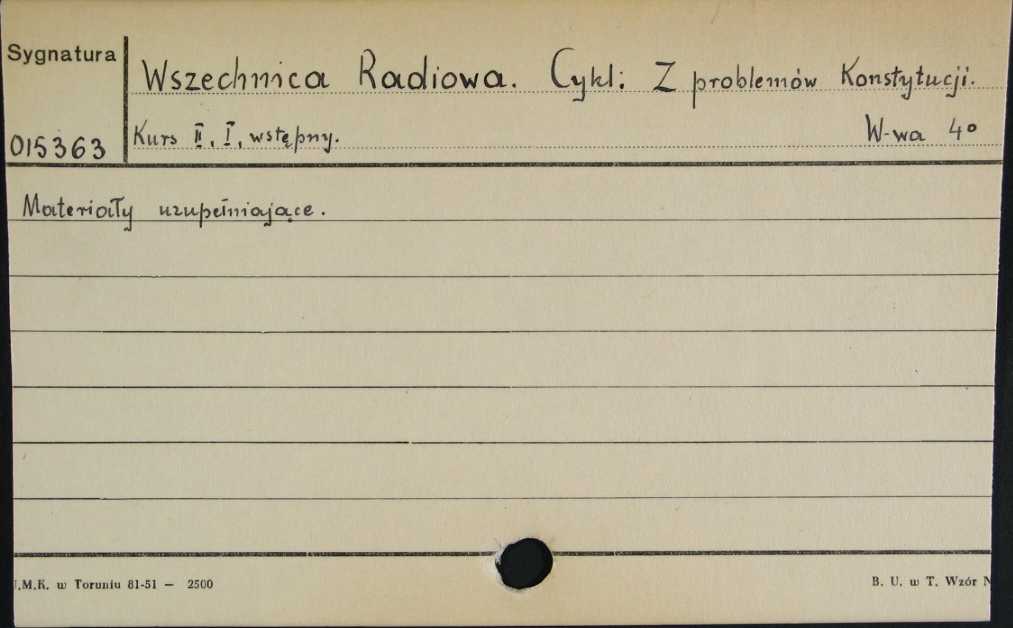 Sygnatura
Wszechnica Radiowa. Cykl: Z problemów Konstytucji.
015363
Kurs II, I, wstępny. W-wa 4°
Materiały uzupełniające.
U.M.K. w Toruniu 81-51 — 2500
B. U. w T. Wzór N